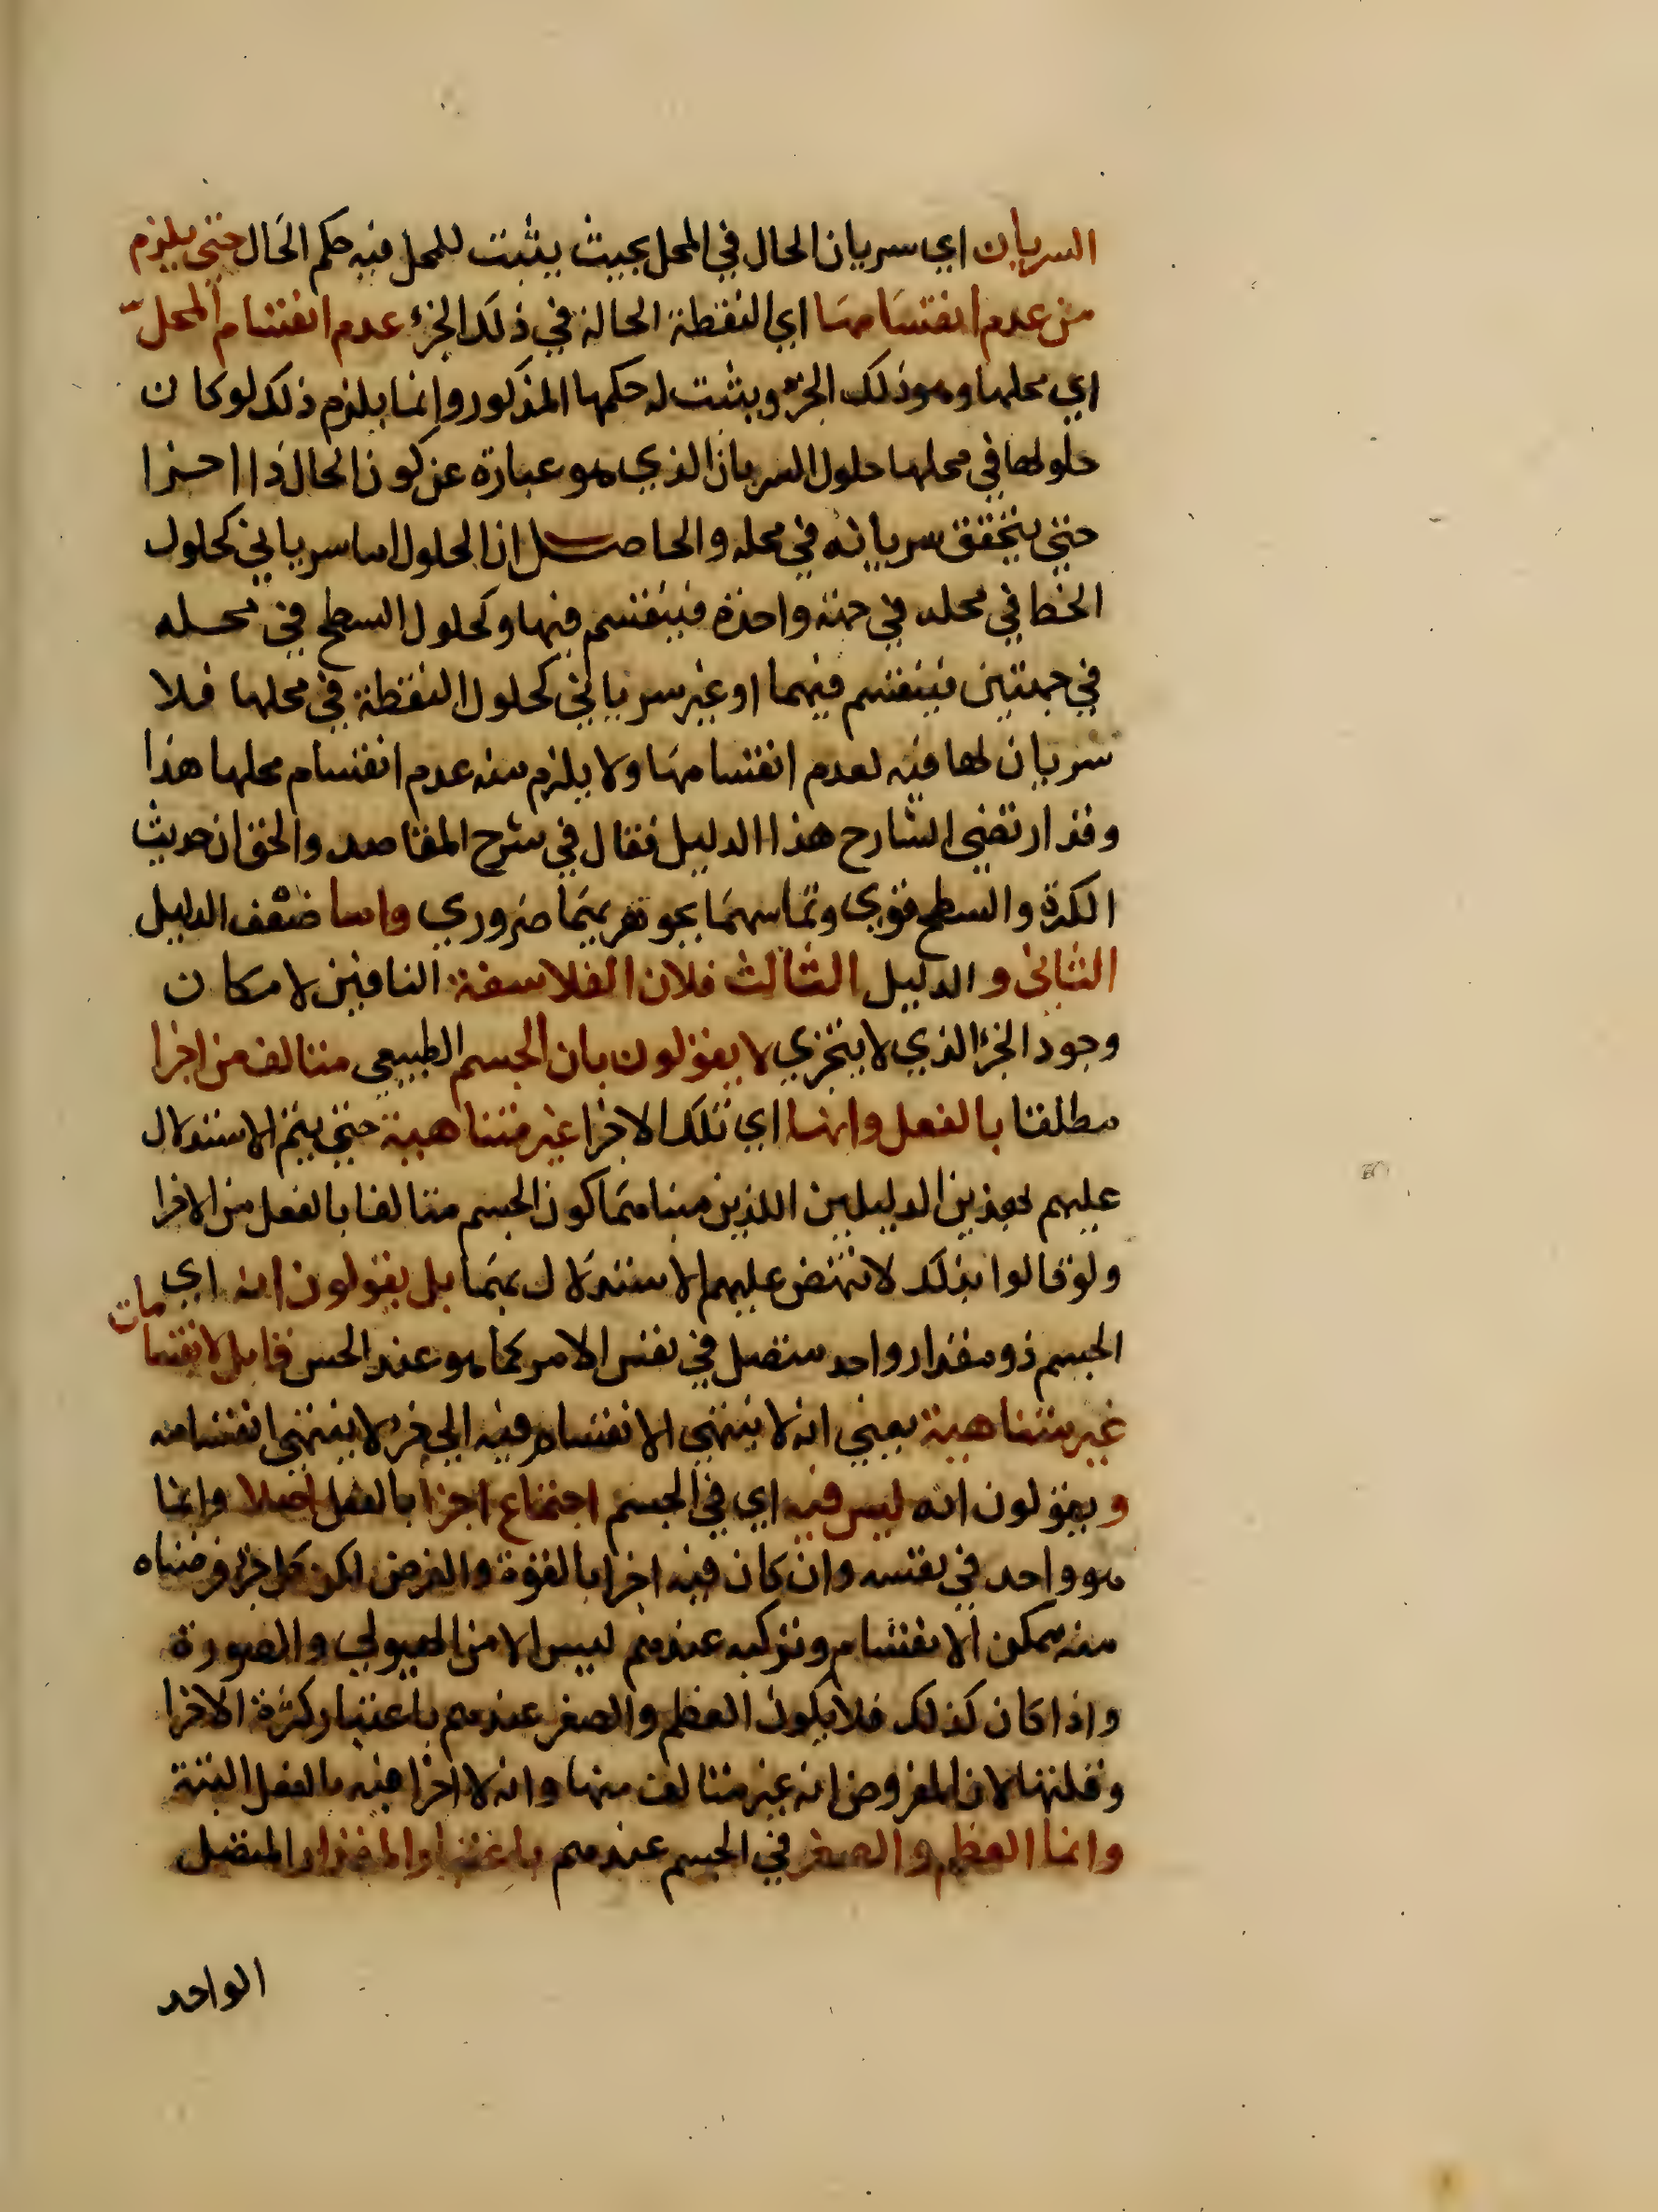 السريان اي سريان الحال في المحل بحيث يثبت للمحل فيه حكم الحَال حتي يلزم
من عدم انقسَامهَا اي النقطة الحالة في ذلك الجزء عدم انقسام المحلّ
اي محلها وهو ذلك الجزء ويثبت له حكمها المذكور وانما يلزم ذلك لو كان
حلولها في محلها حلول السريان الذي هو عبارة عن كون الحال ذا اجزا
حتي يتحقق سريانه في محله والحاصل ان الحلول اما سرياني كحلول
الخط في محله في جهة واحدة فينقسم فيها وكحلول السطح في محله
في جهتين فينقسم فيهما او غير سرياني كحلول النقطة في محلها فلا
سريان لها فيه لعدم انقسامهَا ولا يلزم منه عدم انقسام محلها هذا
وقد ارتضي الشارح هذا الدليل فقال في شرح المقاصد والحق ان حديث
الكرة والسطح قوي وتماسهمَا بجوهريهمَا ضروري واما ضعف الدليل
الثاني و الدليل الثالث فلان الفلاسفة النافين لامكان
وجود الجزء الذي لا يتجزي لا يقولون بان الجسم الطبيعي متالف من اجزا
مطلقا بالفعل وانها اي تلك الاجزا غير متناهية حتي يتم الاستدلال
عليهم بهذين الدليلين اللذين مبناهمَا كون الجسم متالفا بالفعل من الاجزا
ولو قالوا بذلك لانتهض عليهم الاستدلَال بهمَا بل يقولون انه اي
الجسم ذو مقدار واحد متصل في نفس الامر كما هو عند الحس قابل لانقسامات
غير متناهية يعني انه لا ينتهي الانقسام فيه الي جزء لا ينتهي انقسامه
و يقولون انه ليس فيه اي في الجسم اجتماع اجزا بالفعل اصلا وانما
هو واحد في نفسه وان كان فيه اجزا بالقوة والفرض لكن كل جزء فرضناه
منه ممكن الانقسام وتركبه عندهم ليس الا من الهيولي والصورة
واذا كان كذلك فلا يكون العظم والصغر عندهم باعتبار كثرة الاجزا
وقلتها لان المفروض انه غير متالف منها وانه لا اجزا فيه بالفعل البتة
وانما العظم والصغر في الجسم عندهم باعتبار المقدار المتصل
الواحد